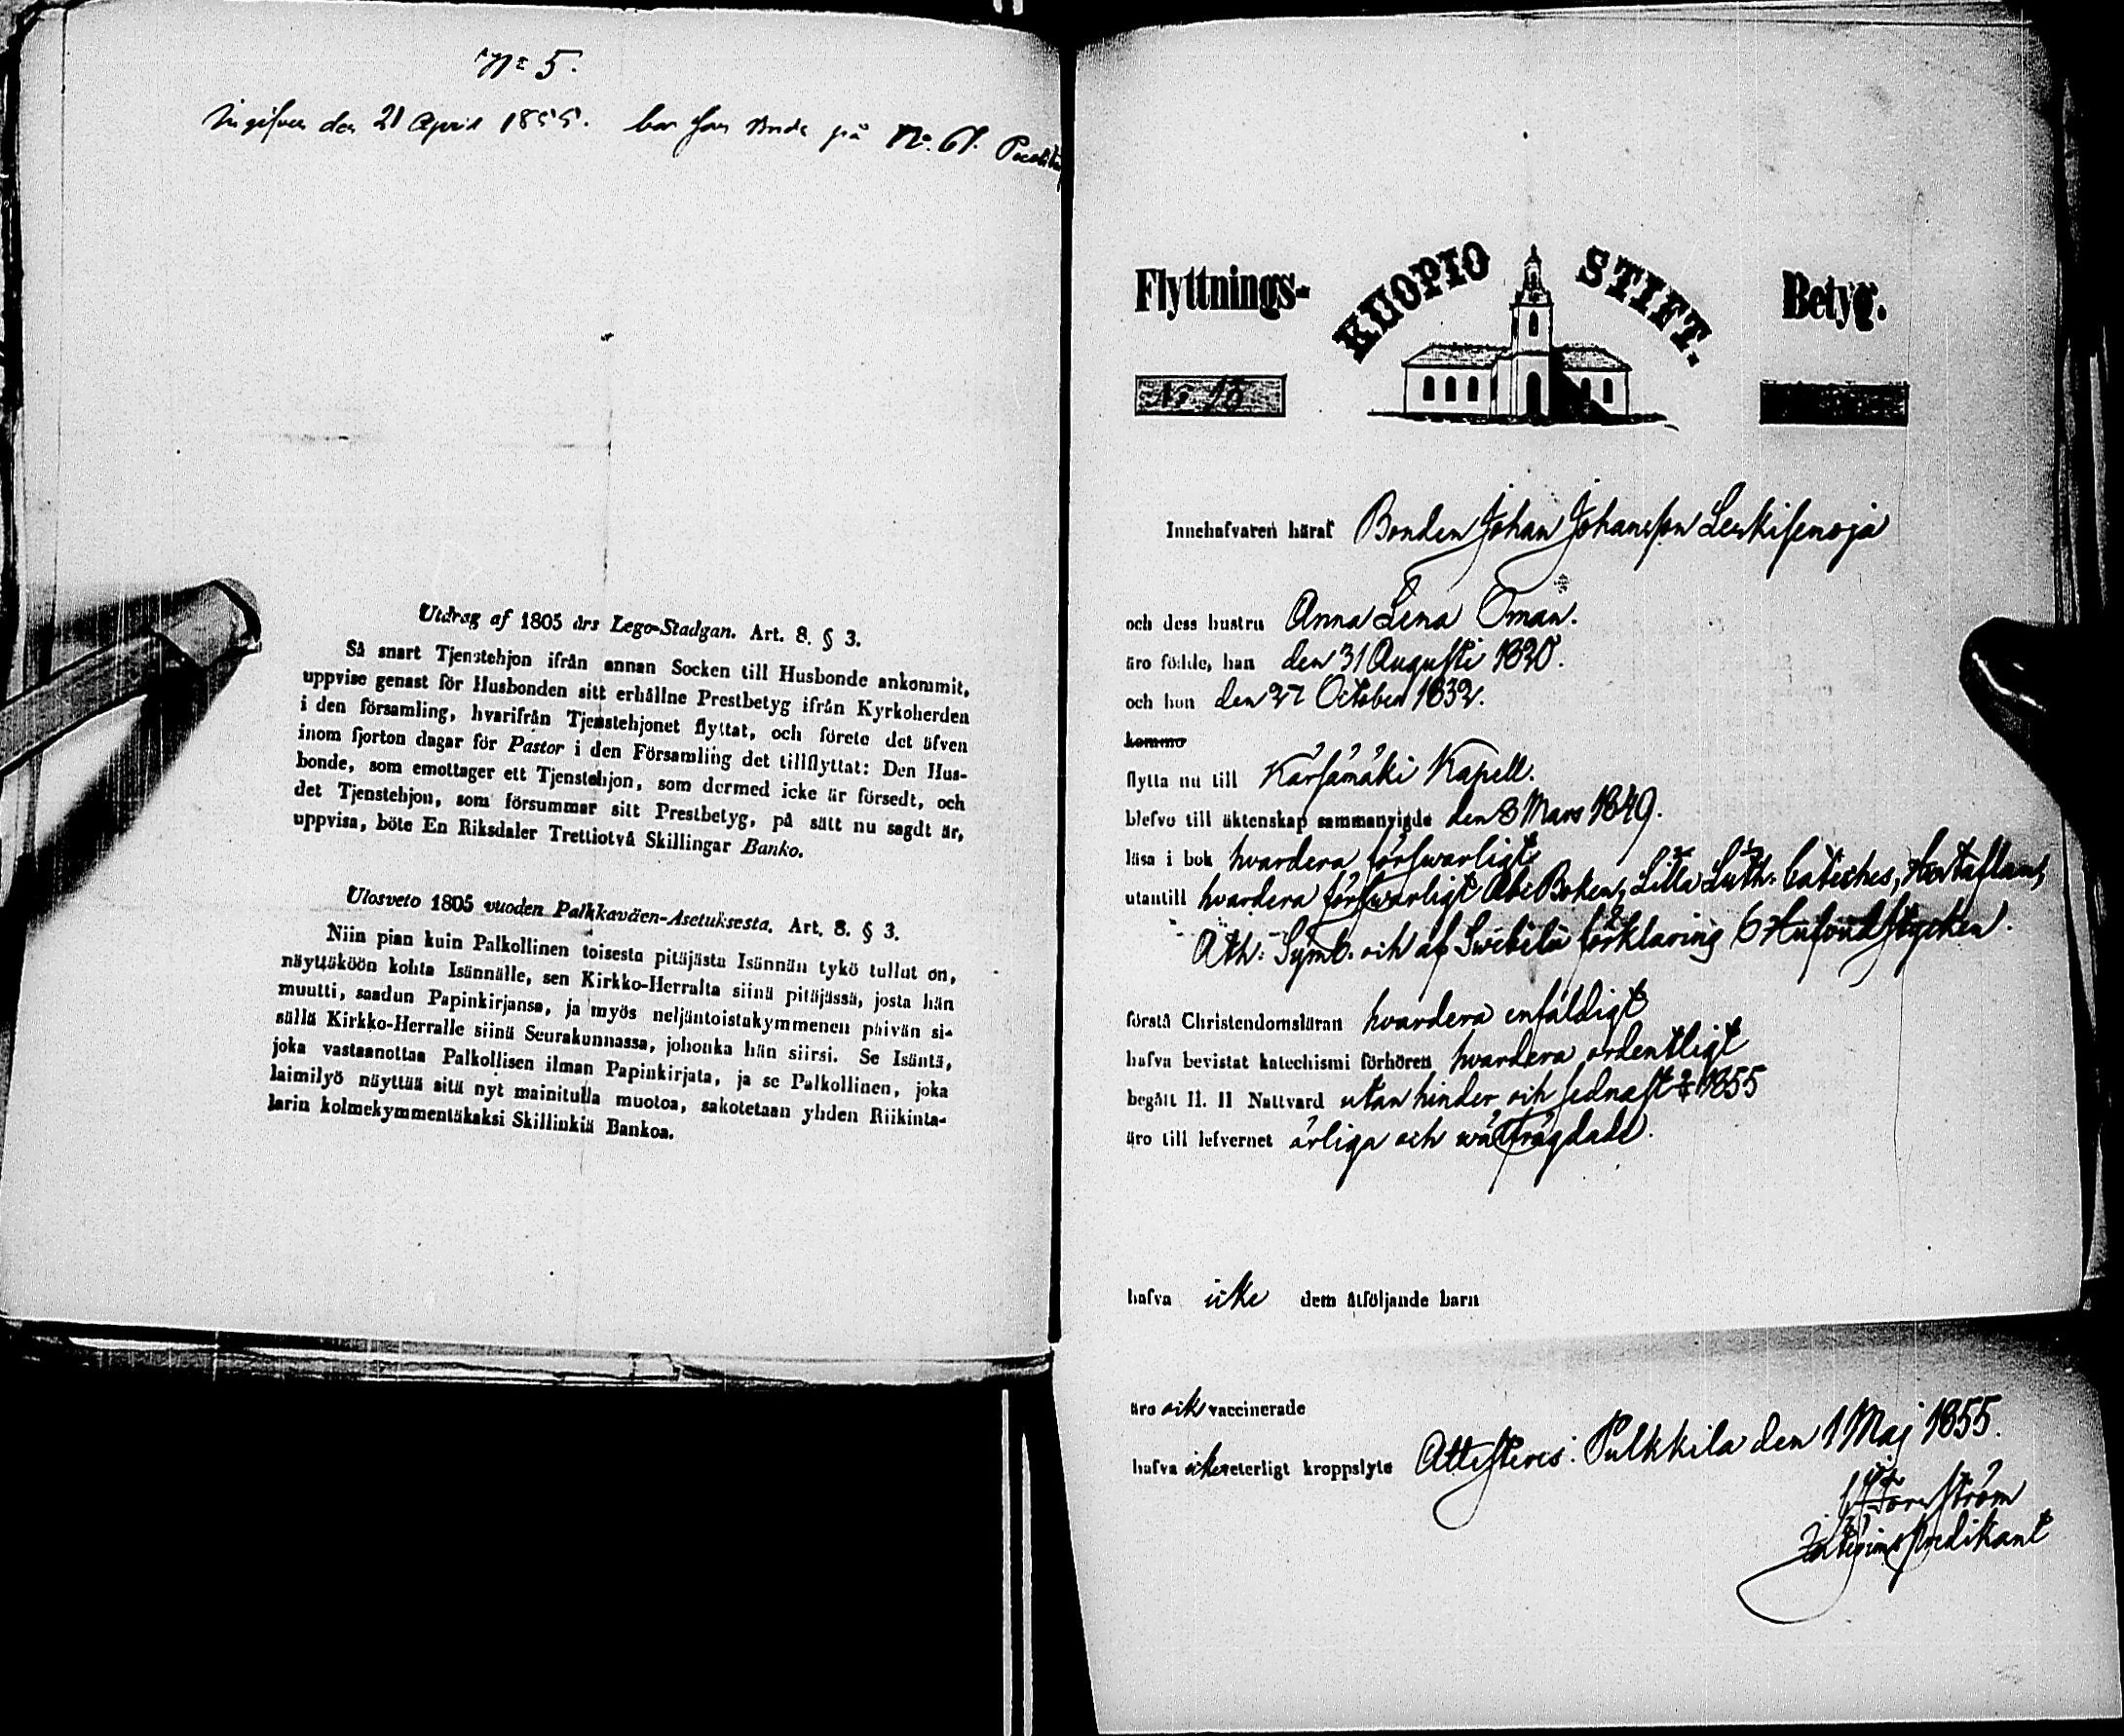 No 5.
Ingifven den 21 April 1855. bor som Bonde på No. 61.
Utdrag af 1805 års Lego-Stadgan. Art. 8. § 3.
Så snart Tjenstehjon ifrån annan Socken till Husbonde ankommit,
uppvise genast för Husbonden sitt erhållne Prestbetyg ifrån Kyrkoherden
i den församling, hvarifrån Tjenstehjonet flyttat, och förete det äfven
inom fjorton dagar för Pastor i den Församling det tillflyttat: Den Hus-
bonde, som emottager ett Tjenstehjon, som dermed icke är försedt, och
det Tjenstehjon, som försummar sitt Prestbetyg, på sätt nu sagdt är,
uppvisa, böte En Riksdaler Trettiotvå Skillingar Banko.
Ulosveto 1805 vuoden Palkkaväen-Asetuksesta. Art. 8. § 3.
Niin pian kuin Palkollinen toisesta pitäjästä Isännän tykö tullut on,
näyttäköön kohta Isännälle, sen Kirkko-Herralta siinä pitäjässä, josta hän
muutti, saadun Papinkirjansa, ja myös neljäntoistakymmenen päivän si-
sällä Kirkko-Herralle siinä Seurakunnassa, johonka hän siirsi. Se Isäntä,
joka vastaanottaa Palkollisen ilman Papinkirjata, ja se Palkollinen, joka
laimilyö näyttää sitä nyt mainitulla muotoa, sakotetaan yhden Riikinta-
larin kolmekymmentäkaksi Skillinkiä Bankoa.
Flyttnings- KUOPIO STIFT. Betyg.
No 18
Innehafvaren häraf Bonden Johan Johansson Leskisenoja
och dess hustru Anna Lena Öman.
äro födde, han den 31 Augusti 1820.
och hon den 27 October 1832.
komma
flytta nu till Kärsämäki Kapell.
blefvo till äktenskap sammanvigde den 8 Mars 1849.
läsa i bok hvardera försvarligt
utantill hvardera försvarligt Abc Boken, Lilla Luth. Cateches, Hustaflan,
Ath: Symb. och af Svebelii förklaring 6 Hufvudstycken.
förstå Christendomsläran hvardera enfäldigt
hafva bevistat katechismi förhören hvardera ordentligt
begått H. H Nattvard utan hinder och sednast 1855
äro till lefvernet ärliga och välfrägdade.
hafva icke dem åtföljande barn
äro ock vaccinerade
hafva icke veterligt kroppslyte Attesteres: Pulkkila den 1 Maj 1855.
Forsström
Interims Predikant